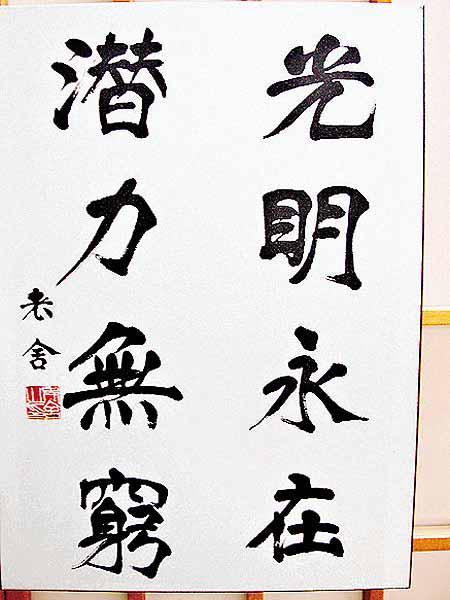 光明永在
潜力無窮
老舍